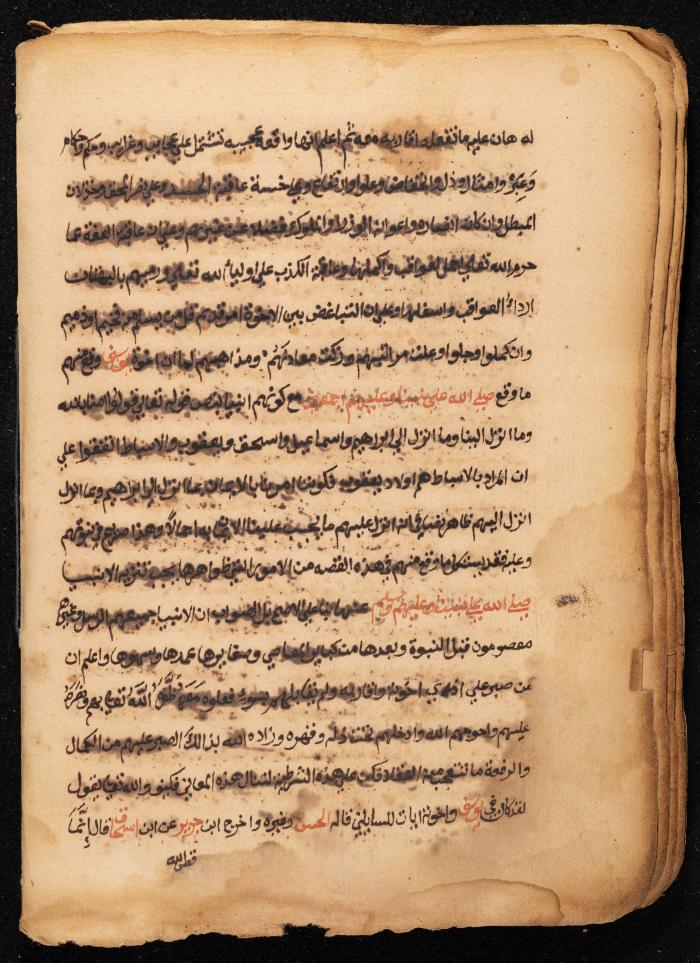 له هان عليه ما تفعله اقاربه معه ثم اعلم انها واقعة عجيبه تشتمل على عجايب وغرايب وحكم وحكام
وعبر وامثال وذل وانخفاض وعلو وارتفاع وعلى خسة عاقبة الحسد وعلى نصر المحق وخذلان
المبطل وان كانه انصاره واعوانه الوزرا والملوك فضلا عن غيرهم وعلى ان عاقبة العفة عما
حرم الله تعالى اجل العواقب واكملها وعاقبة الكذب على اوليا الله تعالى ورميهم بالبهتان
اردا العواقب واسفلها وعلى ان التباغض بين الاخوة امر قديم قل من يسلم من قبيح او ذميم
وان كملوا وجلوا وعلت مراتبهم وزكت معادنهم ومذاهبهم لما ان اخوة يوسف وقع منهم
ما وقع صلى الله على نبينا وعليهم اجمعين مع كونهم انبيا بنص قوله تعالى قولوا امنا بالله
وما انزل الينا وما انزل الى ابراهيم واسماعيل واسحق ويعقوب والاسباط اتفقوا على
ان المراد بالاسباط هم اولاد يعقوب فكوننا امرنا بالايمان بما انزل الى ابراهيم وبما انزل
انزل اليهم ظاهر في انه انزل عليهم ما يجب علينا الايمان به اجمالا وهذا صريح في نبوتهم
وعليه فقد يشكل ما وقع منهم في هذه القصه من الامور التي ظواهرها يجب تنزيه الانبيا
صلى الله على نبينا وعليهم وسلم عنها بنا على الاصح بل الصواب ان الانبيا جميعهم الرسل وغيرهم
معصومون قبل النبوة وبعدها من كباير المعاصي وصغايرها عمدها وسهوها واعلم ان
من صبر على اذى اخوته واقاربه ولم يقابلهم بسوء فعلوه معه الله تعالى بهم ونصره
عليهم واحوجهم الله وادخلهم تحت ذله وقهره وزاده الله بذالك الصبر عليهم من الكمال
والرفعة ما تتعجب منه العقلا فكن على هذه الشريطة لتنال هذه المعاني فكيف والله تعالى يقول
لقد كان في يوسف واخوته ايات للسايلين قاله الحسن وغيره واخرج ابن جرير عن ابن اسحاق قال انما
قص الله